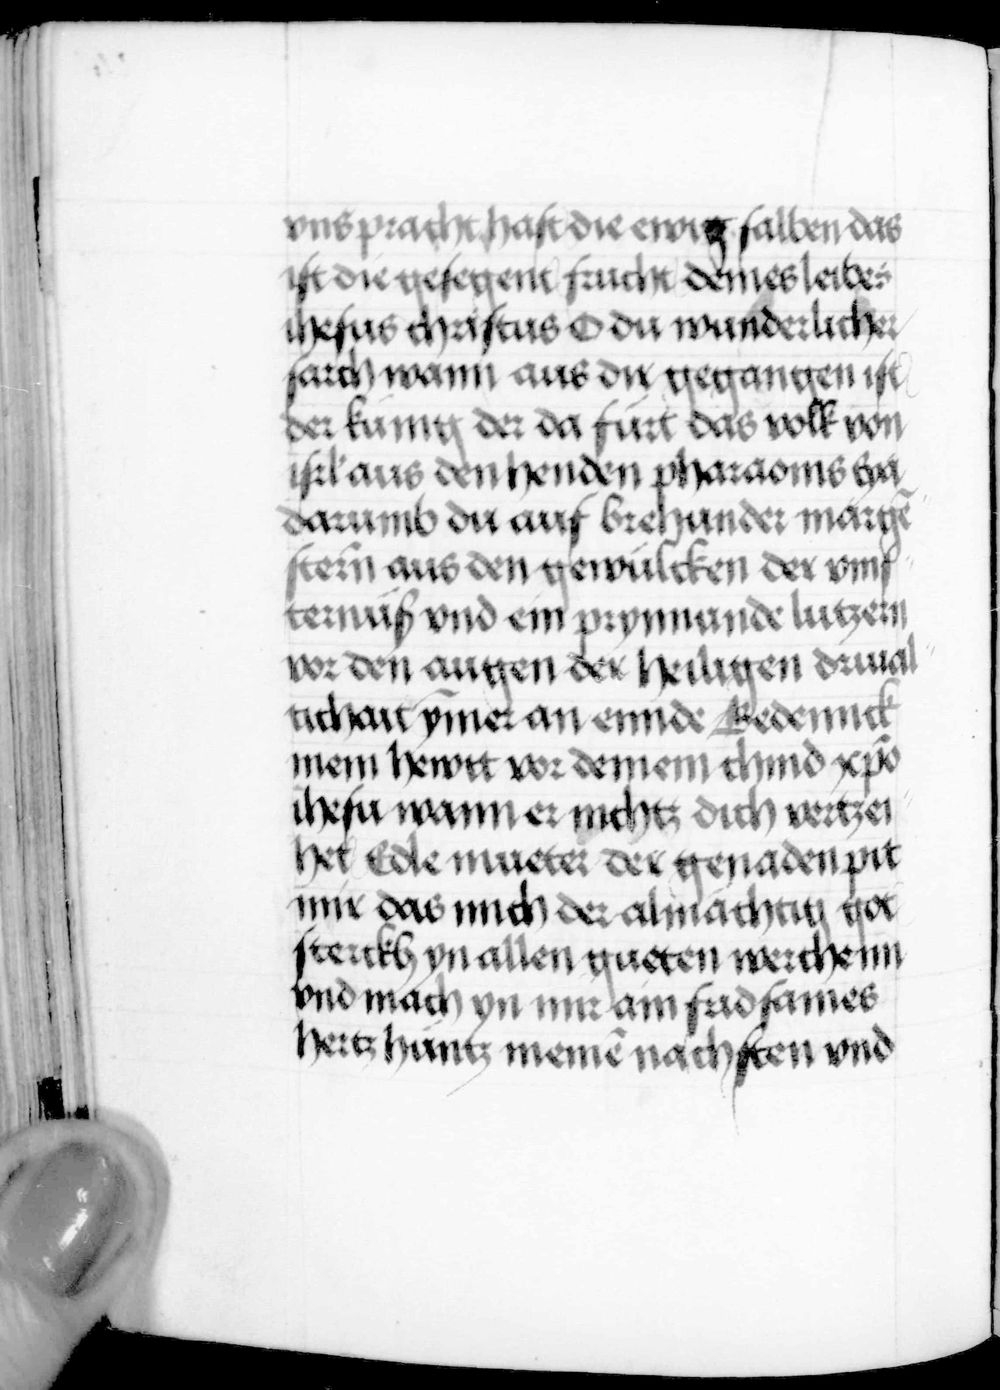 vns pracht hast die ewig salben das
ist die gesegent frucht deines leibes
ihesus christus O du wunderlicher
sarch wann aus dir gegangen ist
der künig der da fürt das volk von
isrl' aus den henden pharaonis Eya
darumb du auf brehunder margē
sterñ aus den gewülcken der vinſ
ternüß vnd ein prynnunde lutzern
vor den augen der heiligen driual
tichait ym̄er an ennde Bedennck
mein hewtt vor deinem chind xp̄o
ihesu wann er nichtz dich vertzei
het Edle mueter der genaden pit
mir das mich der almächtig got
sterckh yn allen gueten werchenn
vnd mach yn mir ain fridsames
hertz hüntz meinē nachsten vnd